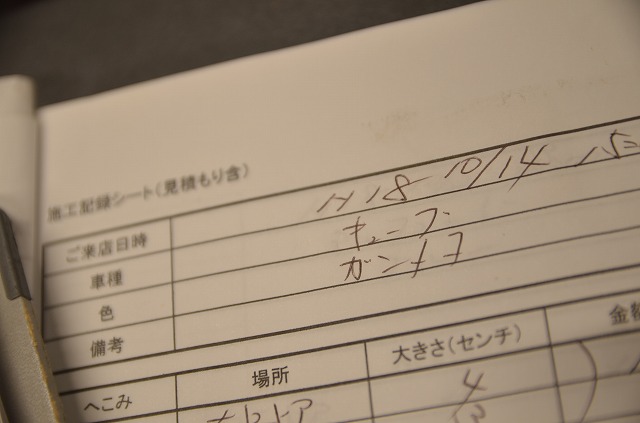 施工記録シート(見積もり含)
ご来店日時 H18 10/14 15
車種 キューブ
色 ガンメタ
備考
へこみ 場所 大きさ(センチ) 金
4